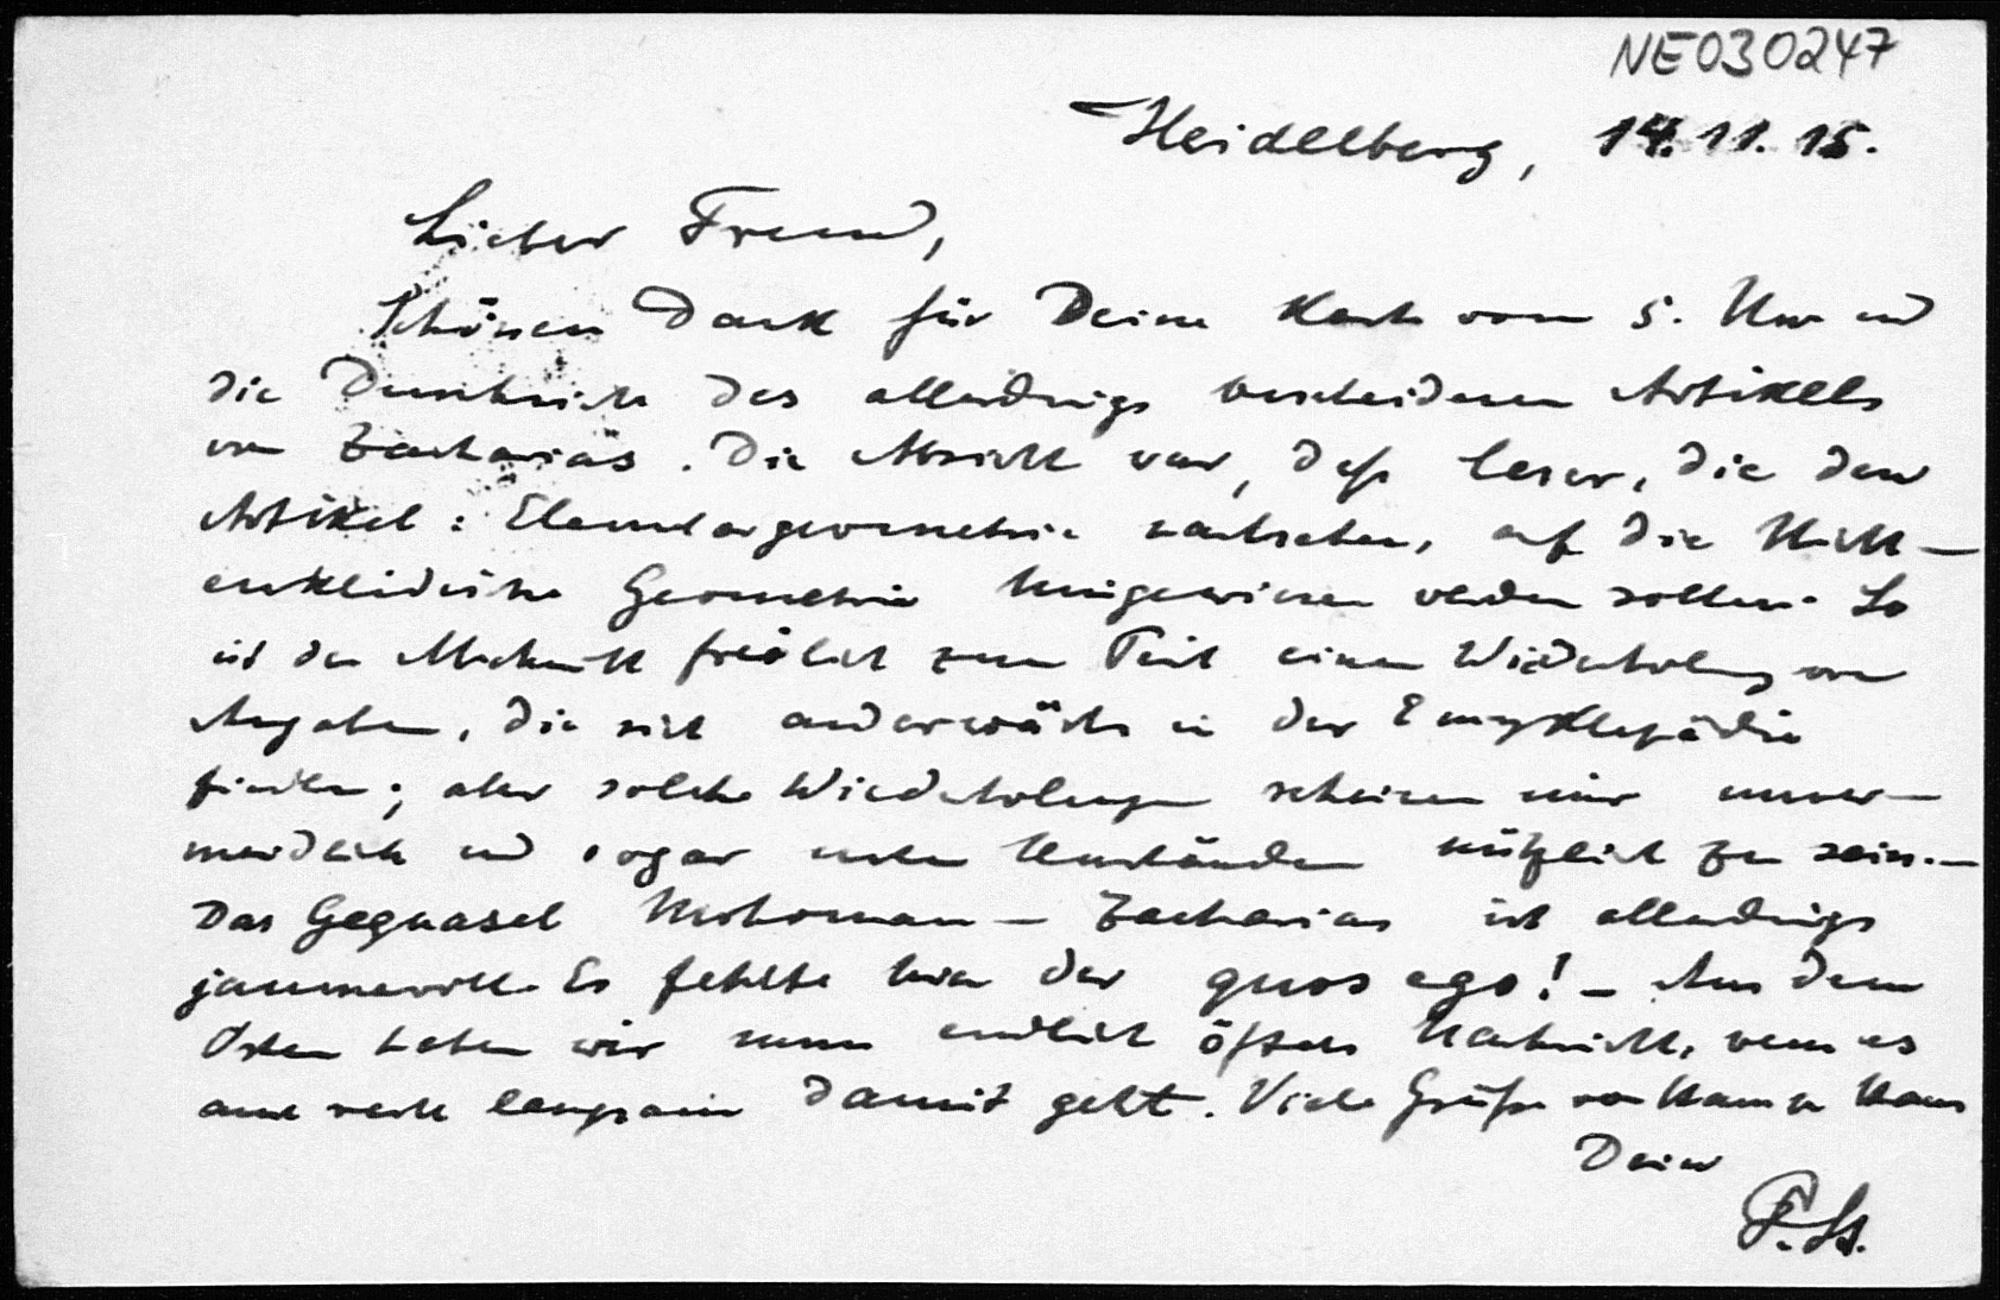 NE030247
Heidelberg, 14.11.15.
Lieber Freund,
Schönen Dank für Deine Karte vom 5. Nov und
die Durchsicht des allerdings bescheidenen Artikels
von Zacharias. Die Absicht war, daß Leser, die den
Artikel: Elementargeometrie nachsehen, auf die Nicht-
euklidische Geometrie hingewiesen werden sollen. So
ist der Abschnitt freilich zum Teil eine Wiederholung von
Angaben, die sich anderwärts in der Encyklopädie
finden; aber solche Wiederholungen scheinen mir unver-
meidlich und sogar unter Umständen nützlich zu sein. –
Das Gequassel – Zacharias ist allerdings
jammervoll. Es fehlte hier der quos ego! – Aus dem
Osten haben wir nun endlich öfters Nachricht, wenn es
auch recht langsam damit geht. Viele Grüße von Haus zu Haus
Dein
P. St.